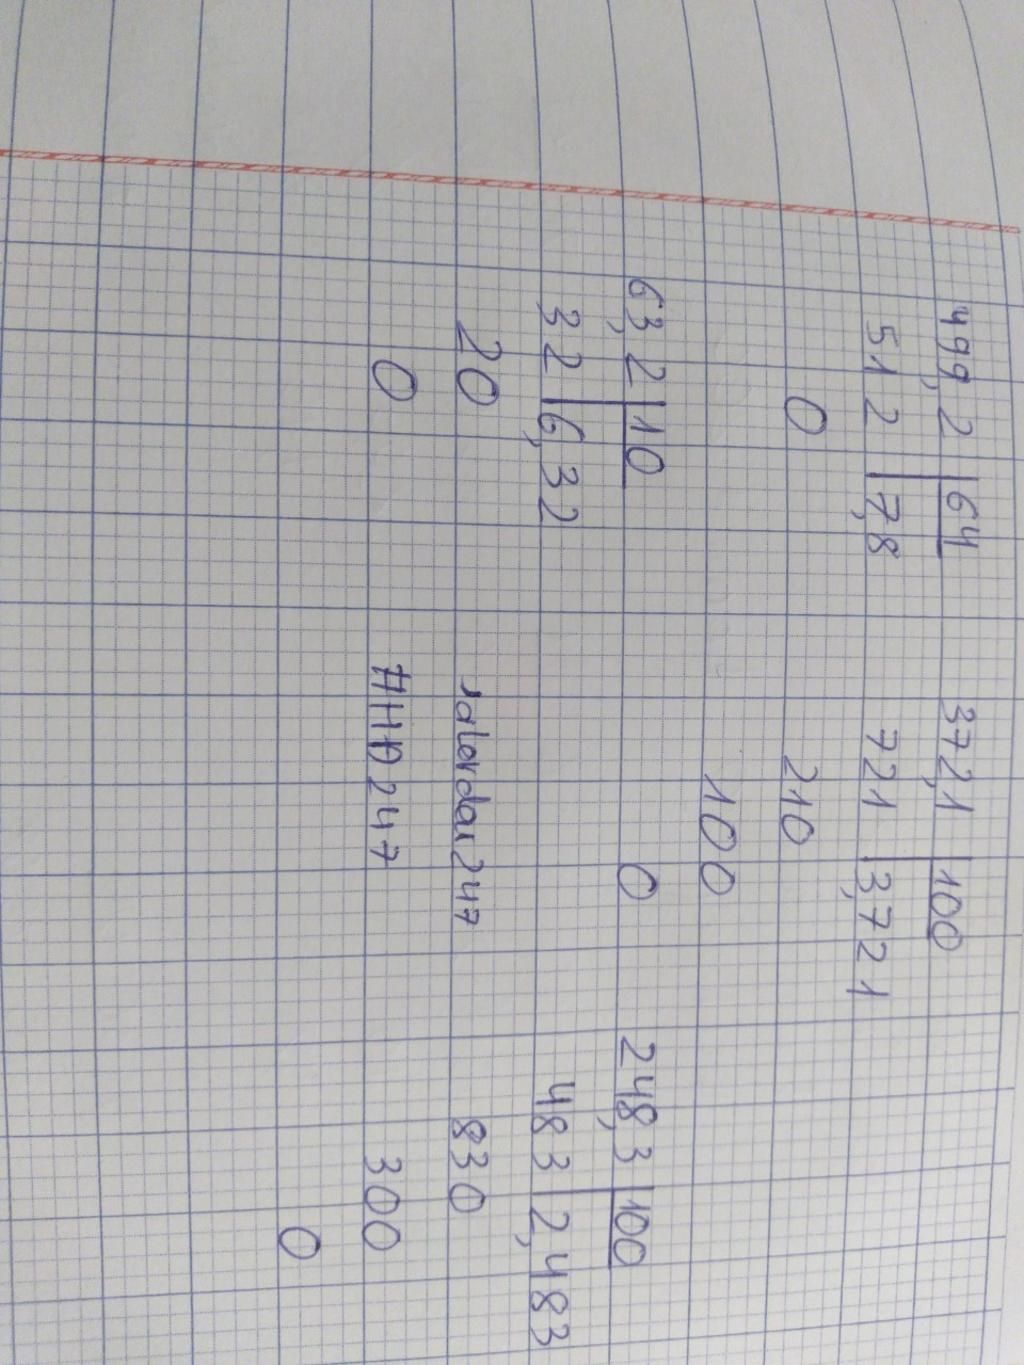 499,2 | 64
512 | 7,8
0
372,1 | 100
721 | 3,721
210
100
0
63,2 | 10
32 | 6,32
20
0
248,3 | 100
483 | 2,483
830
300
0
#HĐ247